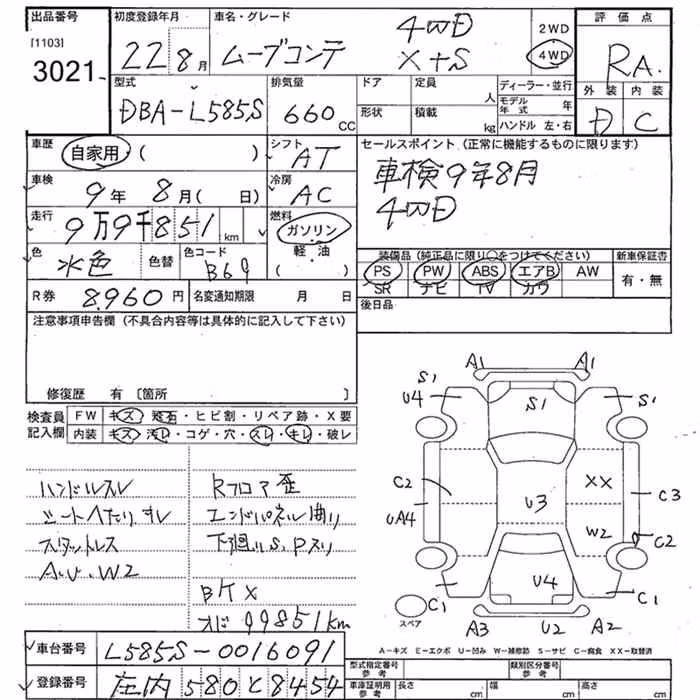 出品番号 初度登録年月 車名・グレード 評価点
[1103]
3021
22年8月 ムーブコンテ 4WD X+S 2WD 4WD RA.
外装 内装
D C
型式 排気量 ドア 定員 人 ディーラー・並行
モデル年式 年
DBA-L585S 660cc 形状 積載 kg ハンドル 左・右
車歴 自家用 ( ) シフト AT セールスポイント (正常に機能するものに限ります)
車検 9年8月( 日) 冷房 AC 車検9年8月
4WD
走行 9万9千851km 燃料 ガソリン 軽・油
色 水色 色替 色コード B69
装備品 (純正品に限り○をつけてください) 新車保証書
PS PW ABS エアB AW 有・無
SR ナビ TV カワ
R券 8960円 名変通知期限 月 日 後日品
注意事項申告欄 (不具合内容等は具体的に記入して下さい)
修復歴 有 [箇所 ]
検査員記入欄 FW キズ・飛石・ヒビ割・リペア跡・X要
内装 キズ・汚レ・コゲ・穴・スレ・キレ・破レ
ハンドルスレ
シートヘたり、スレ
スタットレス
A.U.W2
Rフロア歪
エンドパネル曲り
下廻りS.Pスリ
BKX
オド99851km
A1 A1
S1 U4 S1 S1
C2 XX C3
UA4 U3 W2 C2
C1 U4 C1
スペア A3 U2 A2
A－キズ E－エクボ U－凹み W－補修跡 S－サビ C－腐食 XX－取替済
車台番号 L585S-0016091
登録番号 庄内 580 と 8454
型式指定番号 参考 類別区分番号 参考
車庫証明用 参考 長さ cm 幅 cm 高さ cm